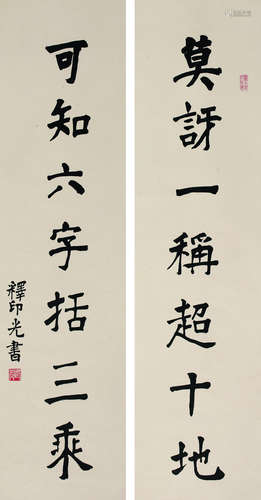 莫訝一稱超十地
可知六字括三乘
釋印光書